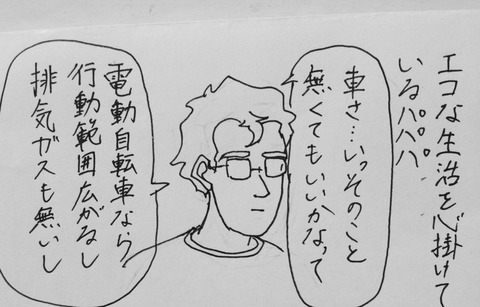 エコな生活を心掛けて
いるパパパ
車さ…いっそのこと
無くてもいいかなって
電動自転車なら
行動範囲広がるし
排気ガスも無いし